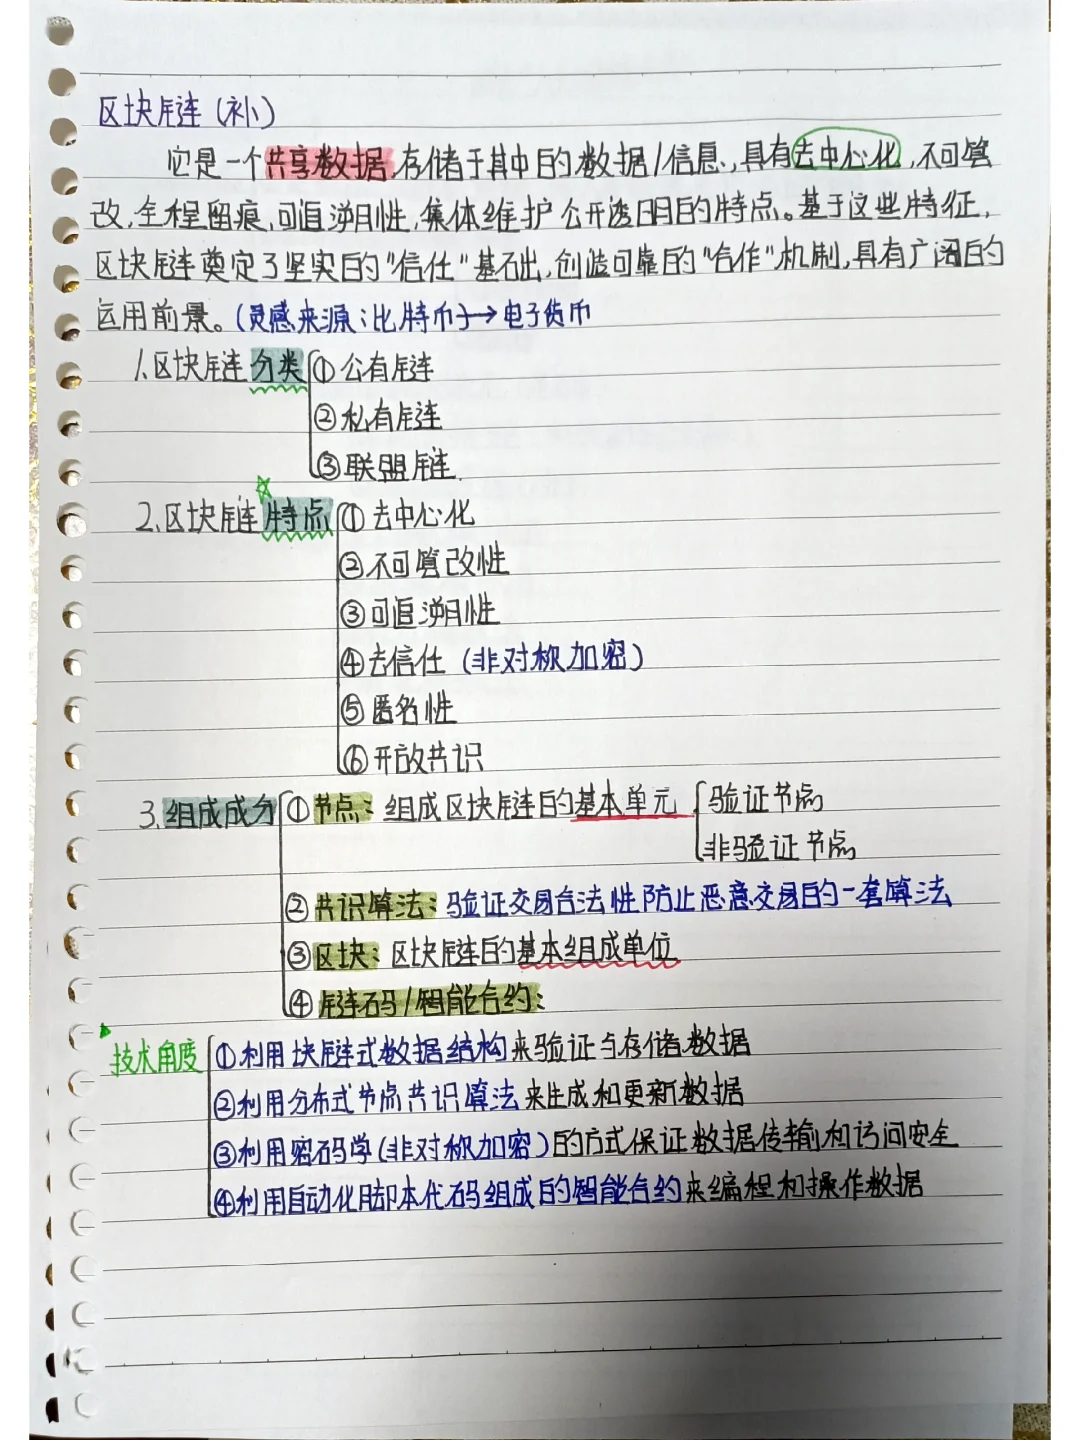 区块链（补）
它是一个共享数据,存储于其中的数据/信息,具有去中心化,不可篡
改,全程留痕,可追溯性,集体维护公开透明的特点。基于这些特征,
区块链奠定了坚实的"信任"基础,创造可靠的"合作"机制,具有广阔的
运用前景。(灵感来源：比特币→电子货币
1.区块链分类 ①公有链
②私有链
③联盟链.
2.区块链特点 ①去中心化
②不可篡改性
③可追溯性
④去信任（非对称加密）
⑤匿名性
⑥开放共识
3.组成成分 ①节点：组成区块链的基本单元 验证节点
非验证节点
②共识算法：验证交易合法性防止恶意交易的一套算法
③区块：区块链的基本组成单位
④链码/智能合约：
技术角度 ①利用块链式数据结构来验证与存储数据
②利用分布式节点共识算法来生成和更新数据
③利用密码学(非对称加密)的方式保证数据传输和访问安全
④利用自动化脚本代码组成的智能合约来编程和操作数据